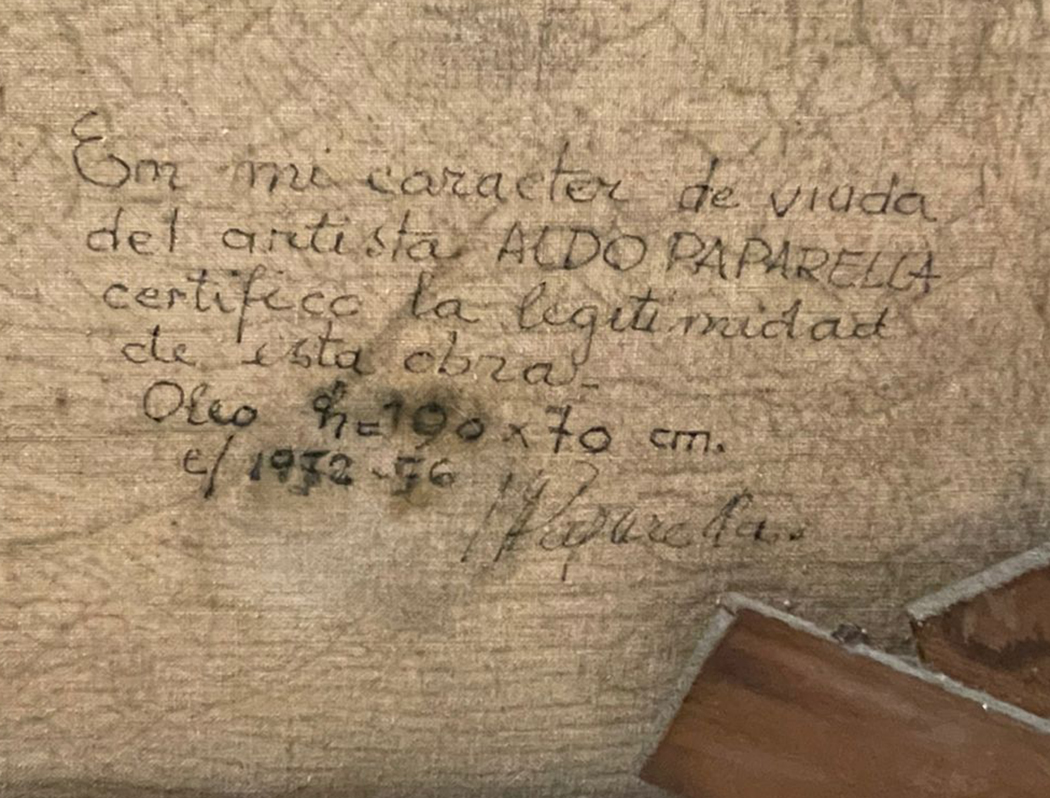 En mi caracter de viuda
del artista ALDO PAPARELLA
certifico la legitimidad
de esta obra.-
Oleo h=100 x 70 cm.
e/ 1972-76
Paparella